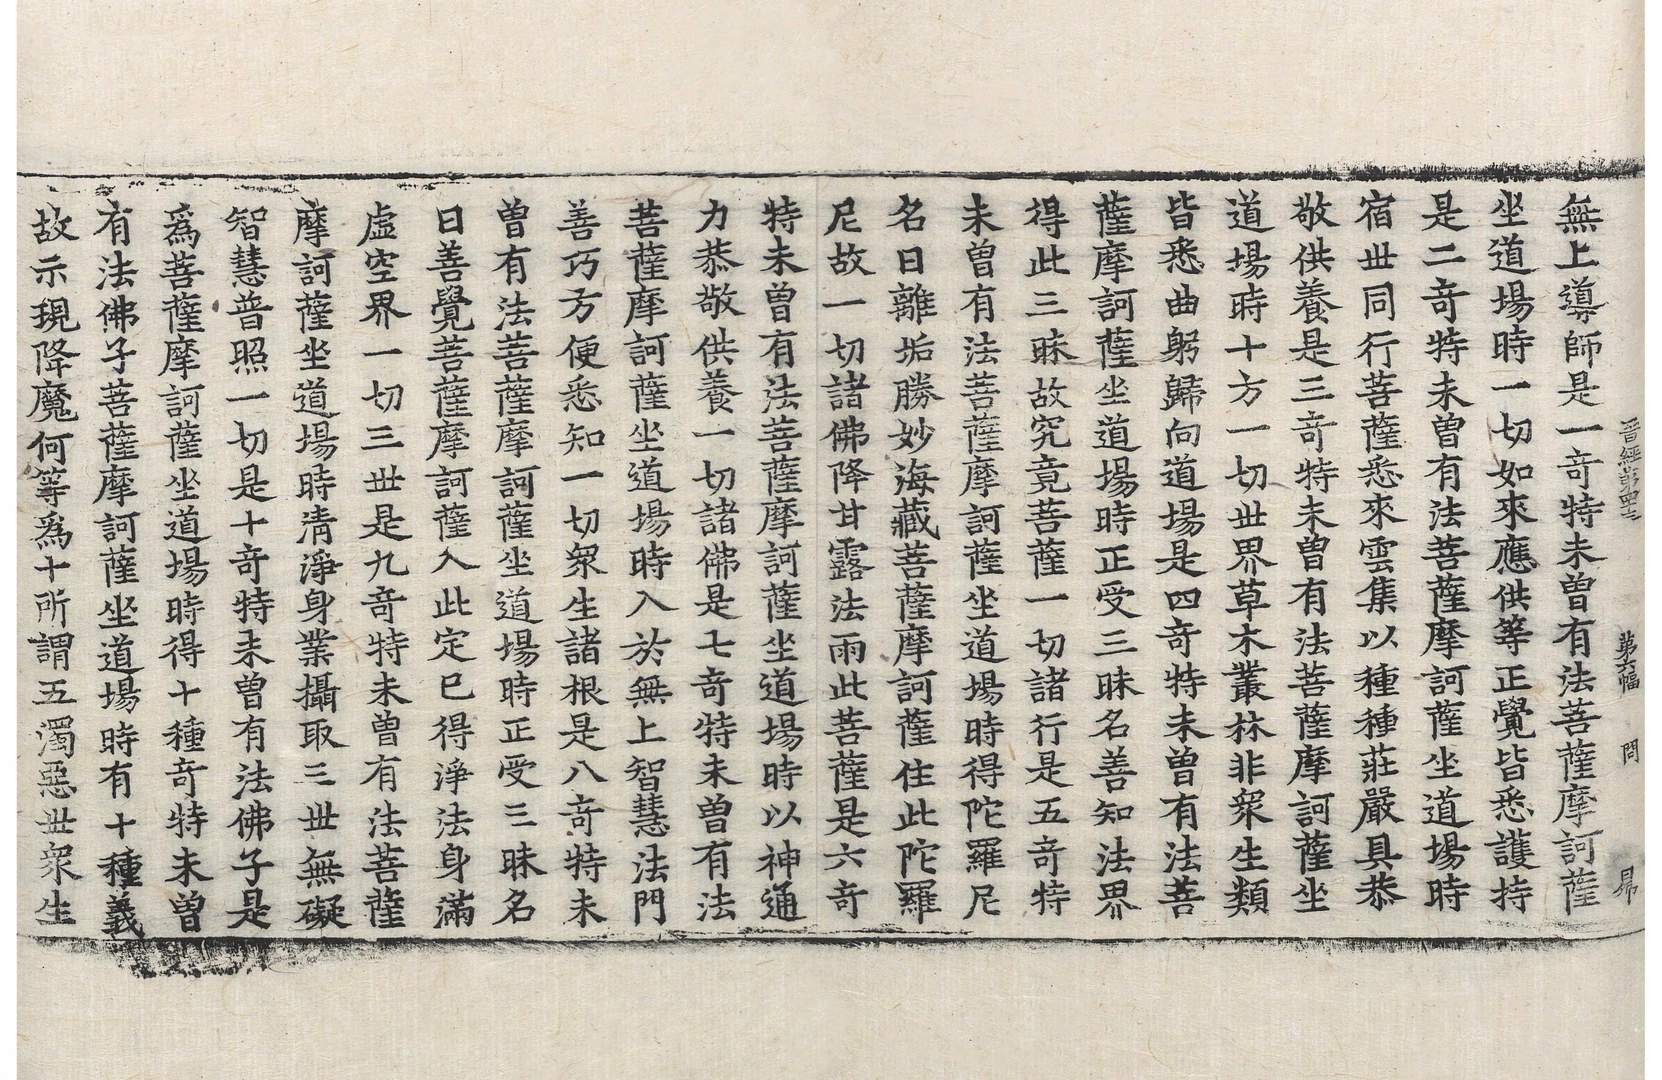 晉經第四十三　第六幅　問　昻
無上導師是一奇特未曾有法菩薩摩訶薩
坐道場時一切如來應供等正覺皆悉護持
是二奇特未曾有法菩薩摩訶薩坐道場時
宿丗同行菩薩悉來雲集以種種莊嚴具恭
敬供養是三奇特未曾有法菩薩摩訶薩坐
道場時十方一切丗界草木叢林非衆生類
皆悉曲躬歸向道場是四奇特未曾有法菩
薩摩訶薩坐道場時正受三昧名善知法界
得此三昧故究竟菩薩一切諸行是五奇特
未曾有法菩薩摩訶薩坐道場時得陀羅尼
名曰離垢勝妙海藏菩薩摩訶薩住此陀羅
尼故一切諸佛降甘露法雨此菩薩是六奇
特未曾有法菩薩摩訶薩坐道場時以神通
力恭敬供養一切諸佛是七奇特未曾有法
菩薩摩訶薩坐道場時入於無上智慧法門
善巧方便悉知一切衆生諸根是八奇特未
曾有法菩薩摩訶薩坐道場時正受三昧名
曰善覺菩薩摩訶薩入此定已得淨法身滿
虛空界一切三丗是九奇特未曾有法菩薩
摩訶薩坐道場時清淨身業攝取三丗無礙
智慧普照一切是十奇特未曾有法佛子是
爲菩薩摩訶薩坐道場時得十種奇特未曾
有法佛子菩薩摩訶薩坐道場時有十種義
故示現降魔何等爲十所謂五濁惡丗衆生